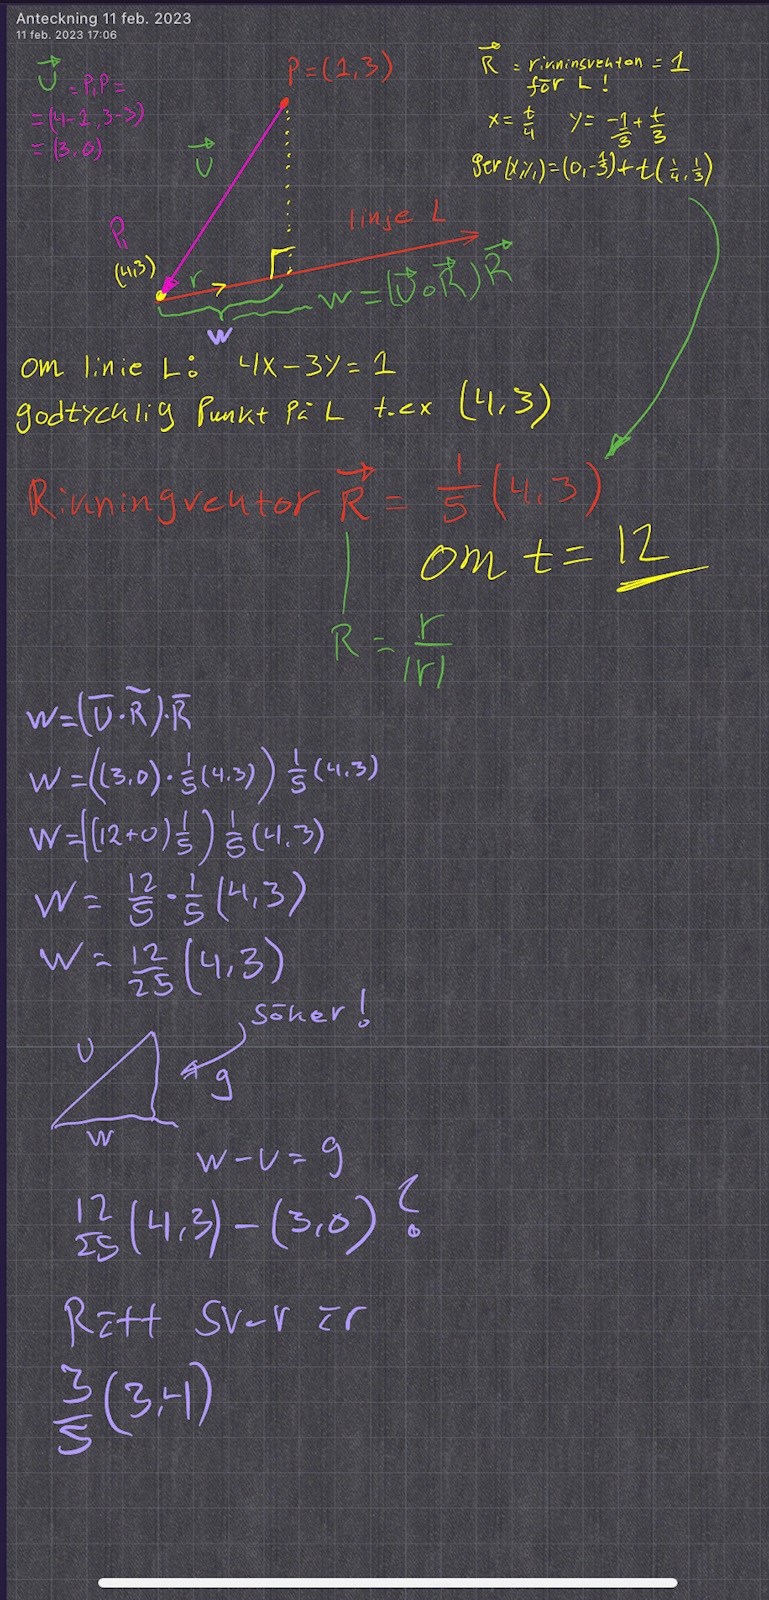 Anteckning 11 feb. 2023
11 feb. 2023 17:06
U = P₁P =
= (4-1, 3-3)
= (3,0)
P = (1,3)
R = rikningsvektor = 1
för L!
x = t/4 y = -1/3 + t/3
ger (x,y) = (0, -1/3) + t(1/4, 1/3)
U
linje L
P₁
(4,3)
r
W = (U∘R)R
W
om linie L: 4x - 3y = 1
godtycklig Punkt På L t.ex (4,3)
Rikningvektor R = 1/5 (4,3)
om t = 12
R = r/|r|
W = (U·R)·R
W = ((3,0)·1/5(4,3)) 1/5(4,3)
W = ((12+0)1/5) 1/5(4,3)
W = 12/5 · 1/5 (4,3)
W = 12/25 (4,3)
Söker!
U
g
W
W - U = g
12/25 (4,3) - (3,0) ?
Rätt svar är
3/5 (3,4)